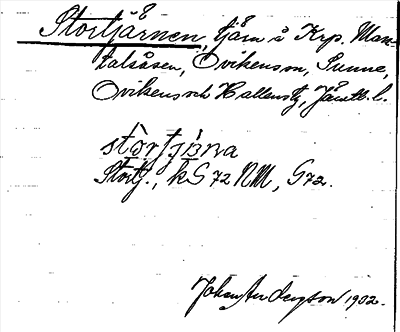 Stortjärnen, tjärn å Krp. Man-
talsåsen, Ovikens sn, Sunne,
Ovikens och Hallens tg, Jämtl. l.
stortjäṇa
Stortj., kG 72 NM, G 72.
Johan Anderzson 1902.